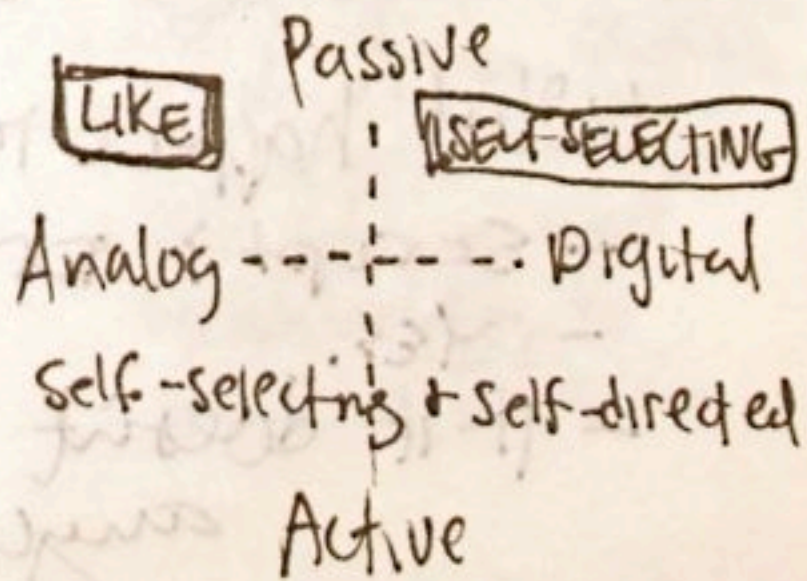 Passive
LIKE
SELF-SELECTING
Analog Digital
Self-selecting + self-directed
Active